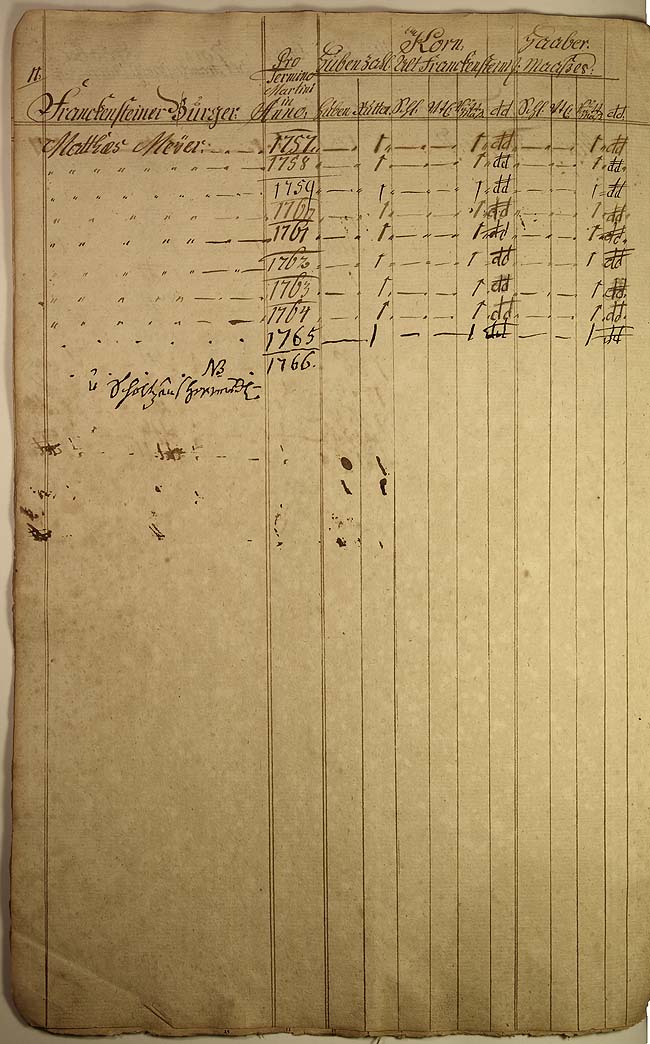 11.
Korn. Haaber.
Pro Termino Martini in Anno. Huben Zahl Alt Franckensteiner Maaßes:
Franckensteiner Bürger. Huben Ruthen Schl. Vtl. Mtz. dd Schl. Vtl. Mtz. dd.
Matthäs Meÿer. 1757. 1 1 dd 1 dd
" " " " " " 1758 1 1 dd 1 dd
" " " " " " 1759 1 1 dd 1 dd
" " " " " " 1760 1 1 dd 1 dd
" " " " " " 1761 1 1 dd 1 dd
" " " " " " 1762 1 1 dd 1 dd
" " " " " " 1763 1 1 dd 1 dd
" " " " " " 1764 1 1 dd 1 dd
1765 1 1 dd 1 dd
NB 1766.